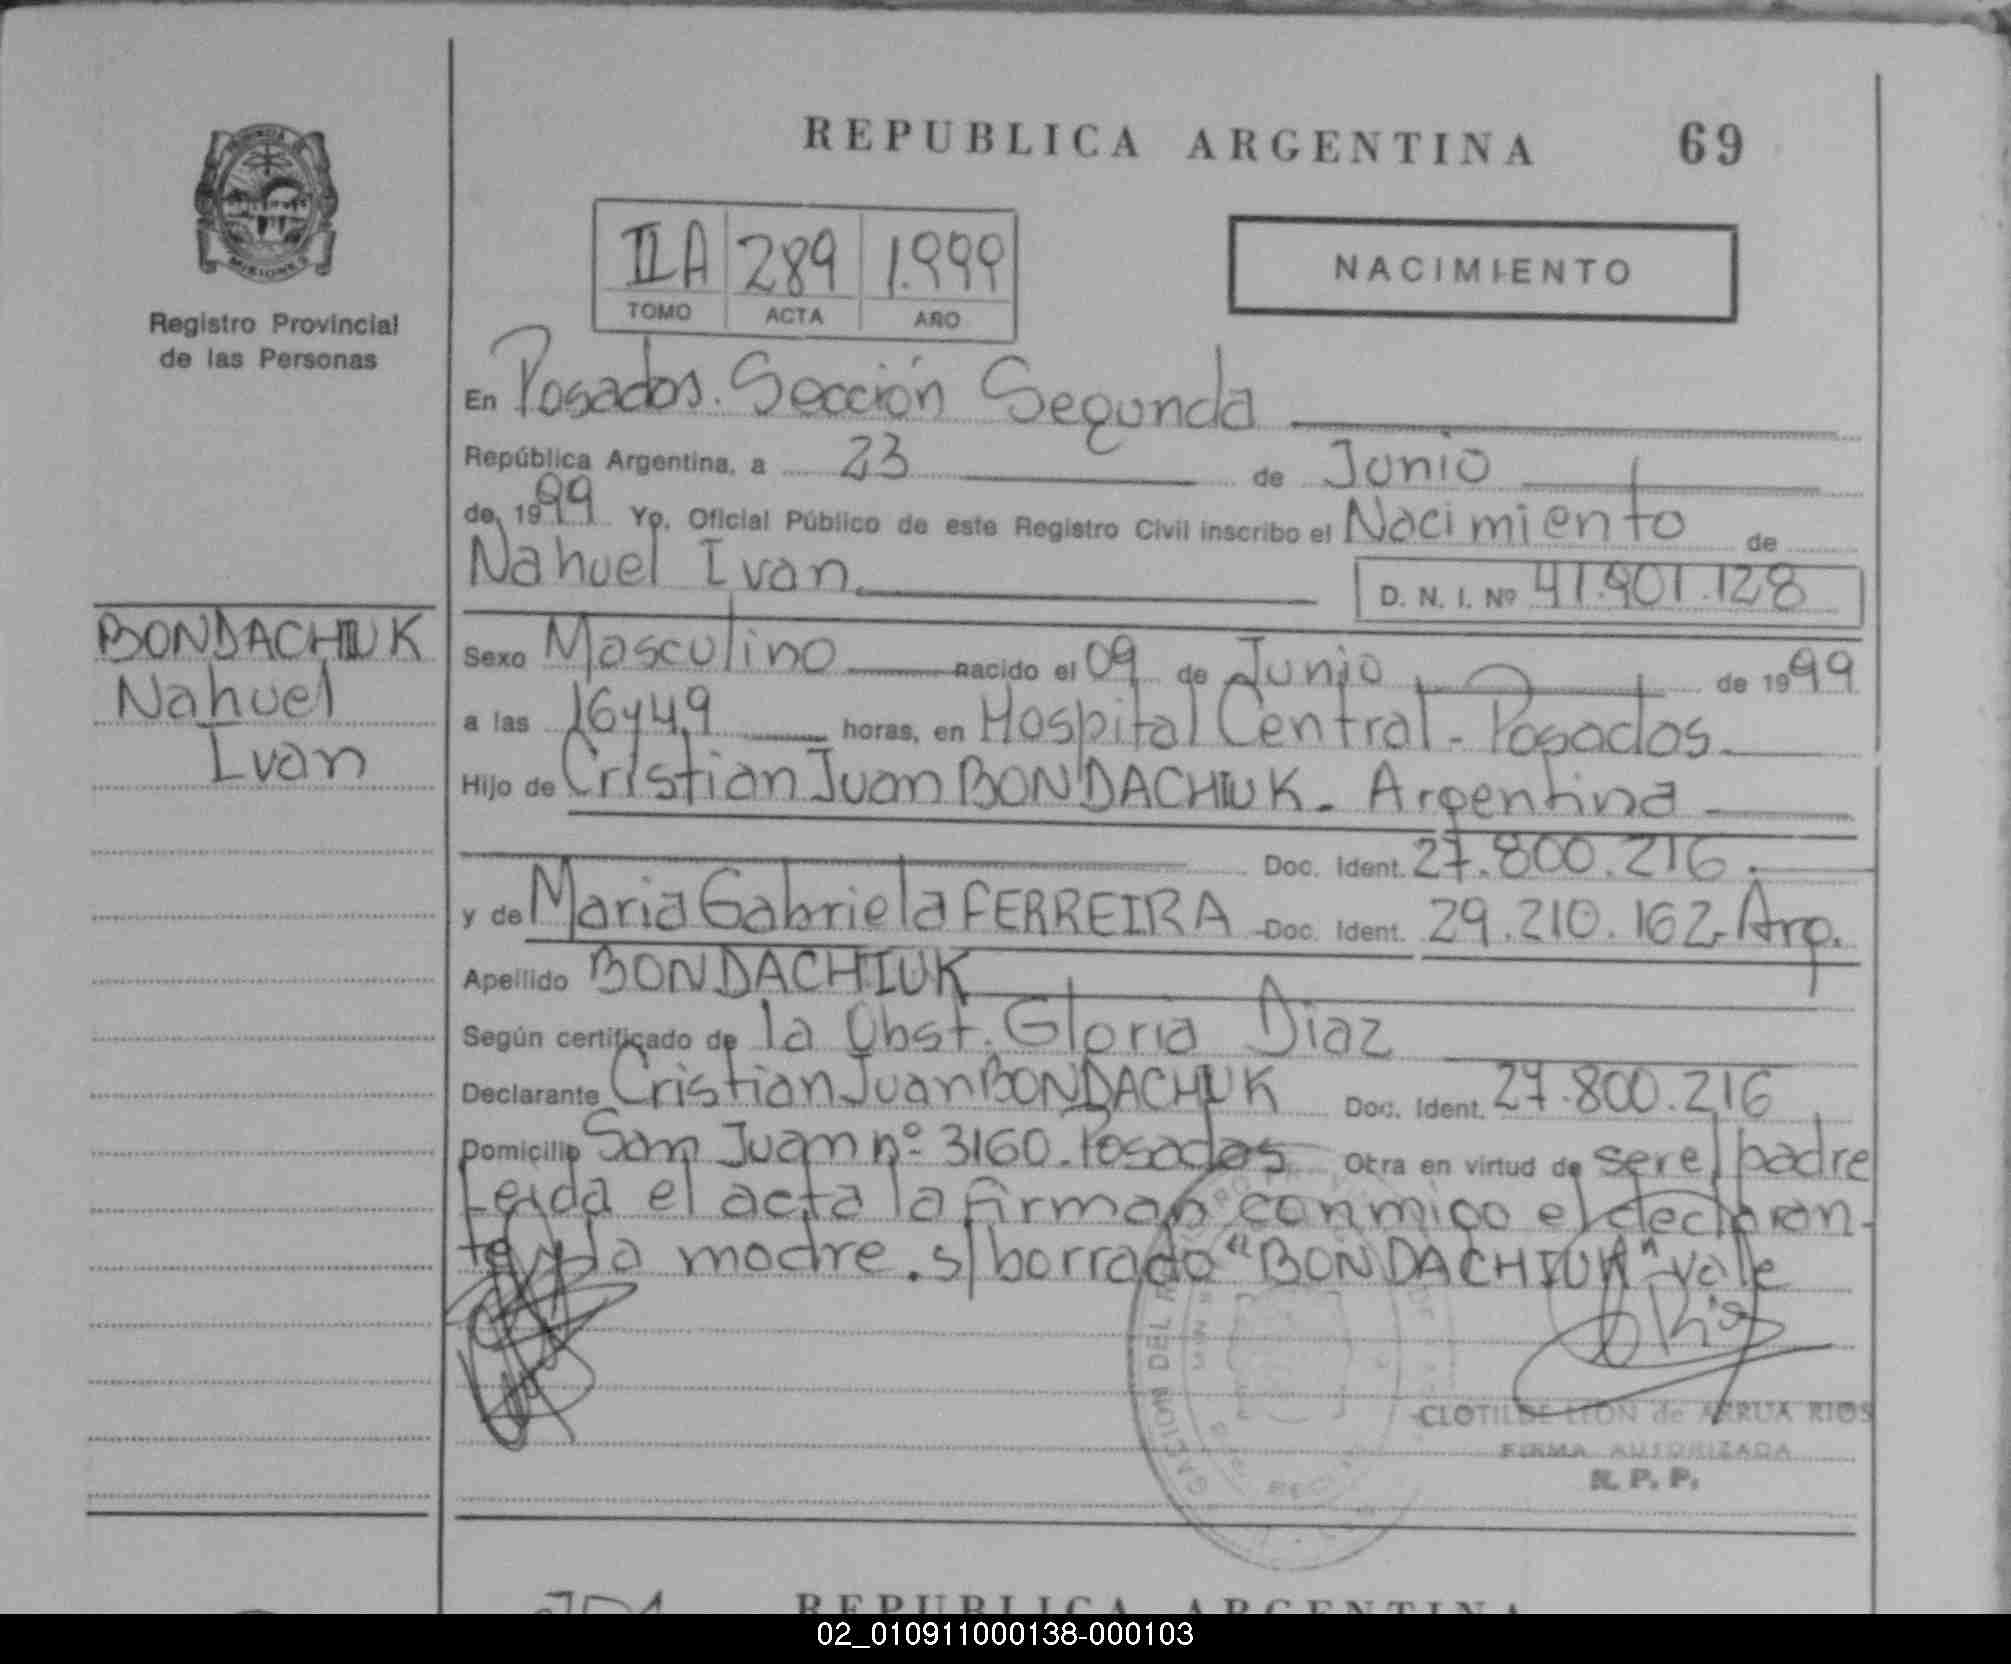 REPUBLICA ARGENTINA 69
MISIONES
Registro Provincial
de las Personas
IIA 289 1.999
TOMO ACTA AÑO
NACIMIENTO
En Posadas. Sección Segunda
República Argentina, a 23 de Junio
de 1999 Yo, Oficial Público de este Registro Civil inscribo el Nacimiento de
Nahuel Ivan D. N. I. Nº 41.901.128
BONDACHIUK
Nahuel
Ivan
Sexo Masculino nacido el 09 de Junio de 1999
a las 16y49 horas, en Hospital Central - Posadas
Hijo de Cristian Juan BONDACHIUK. Argentina
Doc. Ident. 27.800.216.
y de Maria Gabriela FERREIRA Doc. Ident. 29.210.162. Arg.
Apellido BONDACHIUK
Según certificado de la Obst. Gloria Diaz
Declarante Cristian Juan BONDACHIUK Doc. Ident. 27.800.216
Domicilio San Juan nº 3160. Posadas Otra en virtud de ser el padre
Leida el acta la firman conmigo el declaran-
te y la madre. s/borrado "BONDACHIUK" vale
CLOTILDE LEON de ARRUA RIOS
FIRMA AUTORIZADA
R. P. P.
REPUBLICA ARGENTINA
02_010911000138-000103